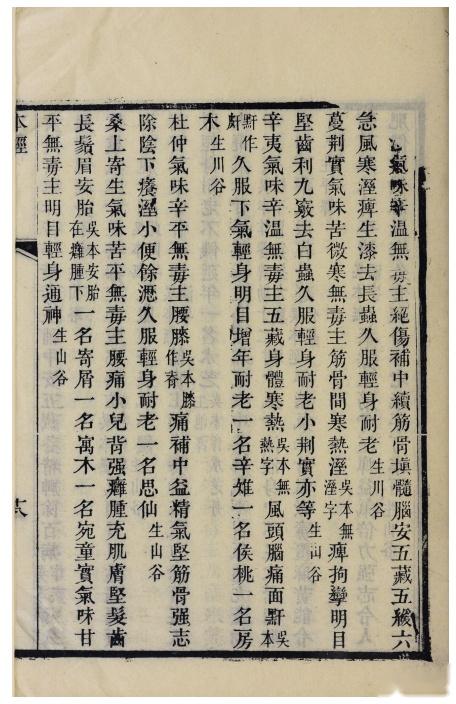 氣味辛溫無毒主絕傷補中續筋骨塡髓腦安五藏五緩六
急風寒溼痺生漆去長蟲久服輕身耐老生川谷
蔓荆實氣味苦微寒無毒主筋骨間寒熱溼吳本無溼字痺拘攣明目
堅齒利九竅去白蟲久服輕身耐老小荆實亦等生山谷
辛夷氣味辛溫無毒主五藏身體寒熱吳本無熱字風頭腦痛面䵟吳本
䵟作皯久服下氣輕身明目增年耐老一名辛雉一名侯桃一名房
木生川谷
杜仲氣味辛平無毒主腰膝吳本膝作脊痛補中益精氣堅筋骨强志
除陰下癢溼小便餘瀝久服輕身耐老一名思仙生山谷
桑上寄生氣味苦平無毒主腰痛小兒背强癰腫充肌膚堅髮齒
長鬚眉安胎吳本安胎在癰腫下一名寄屑一名寓木一名宛童實氣味甘
平無毒主明目輕身通神生山谷
本經